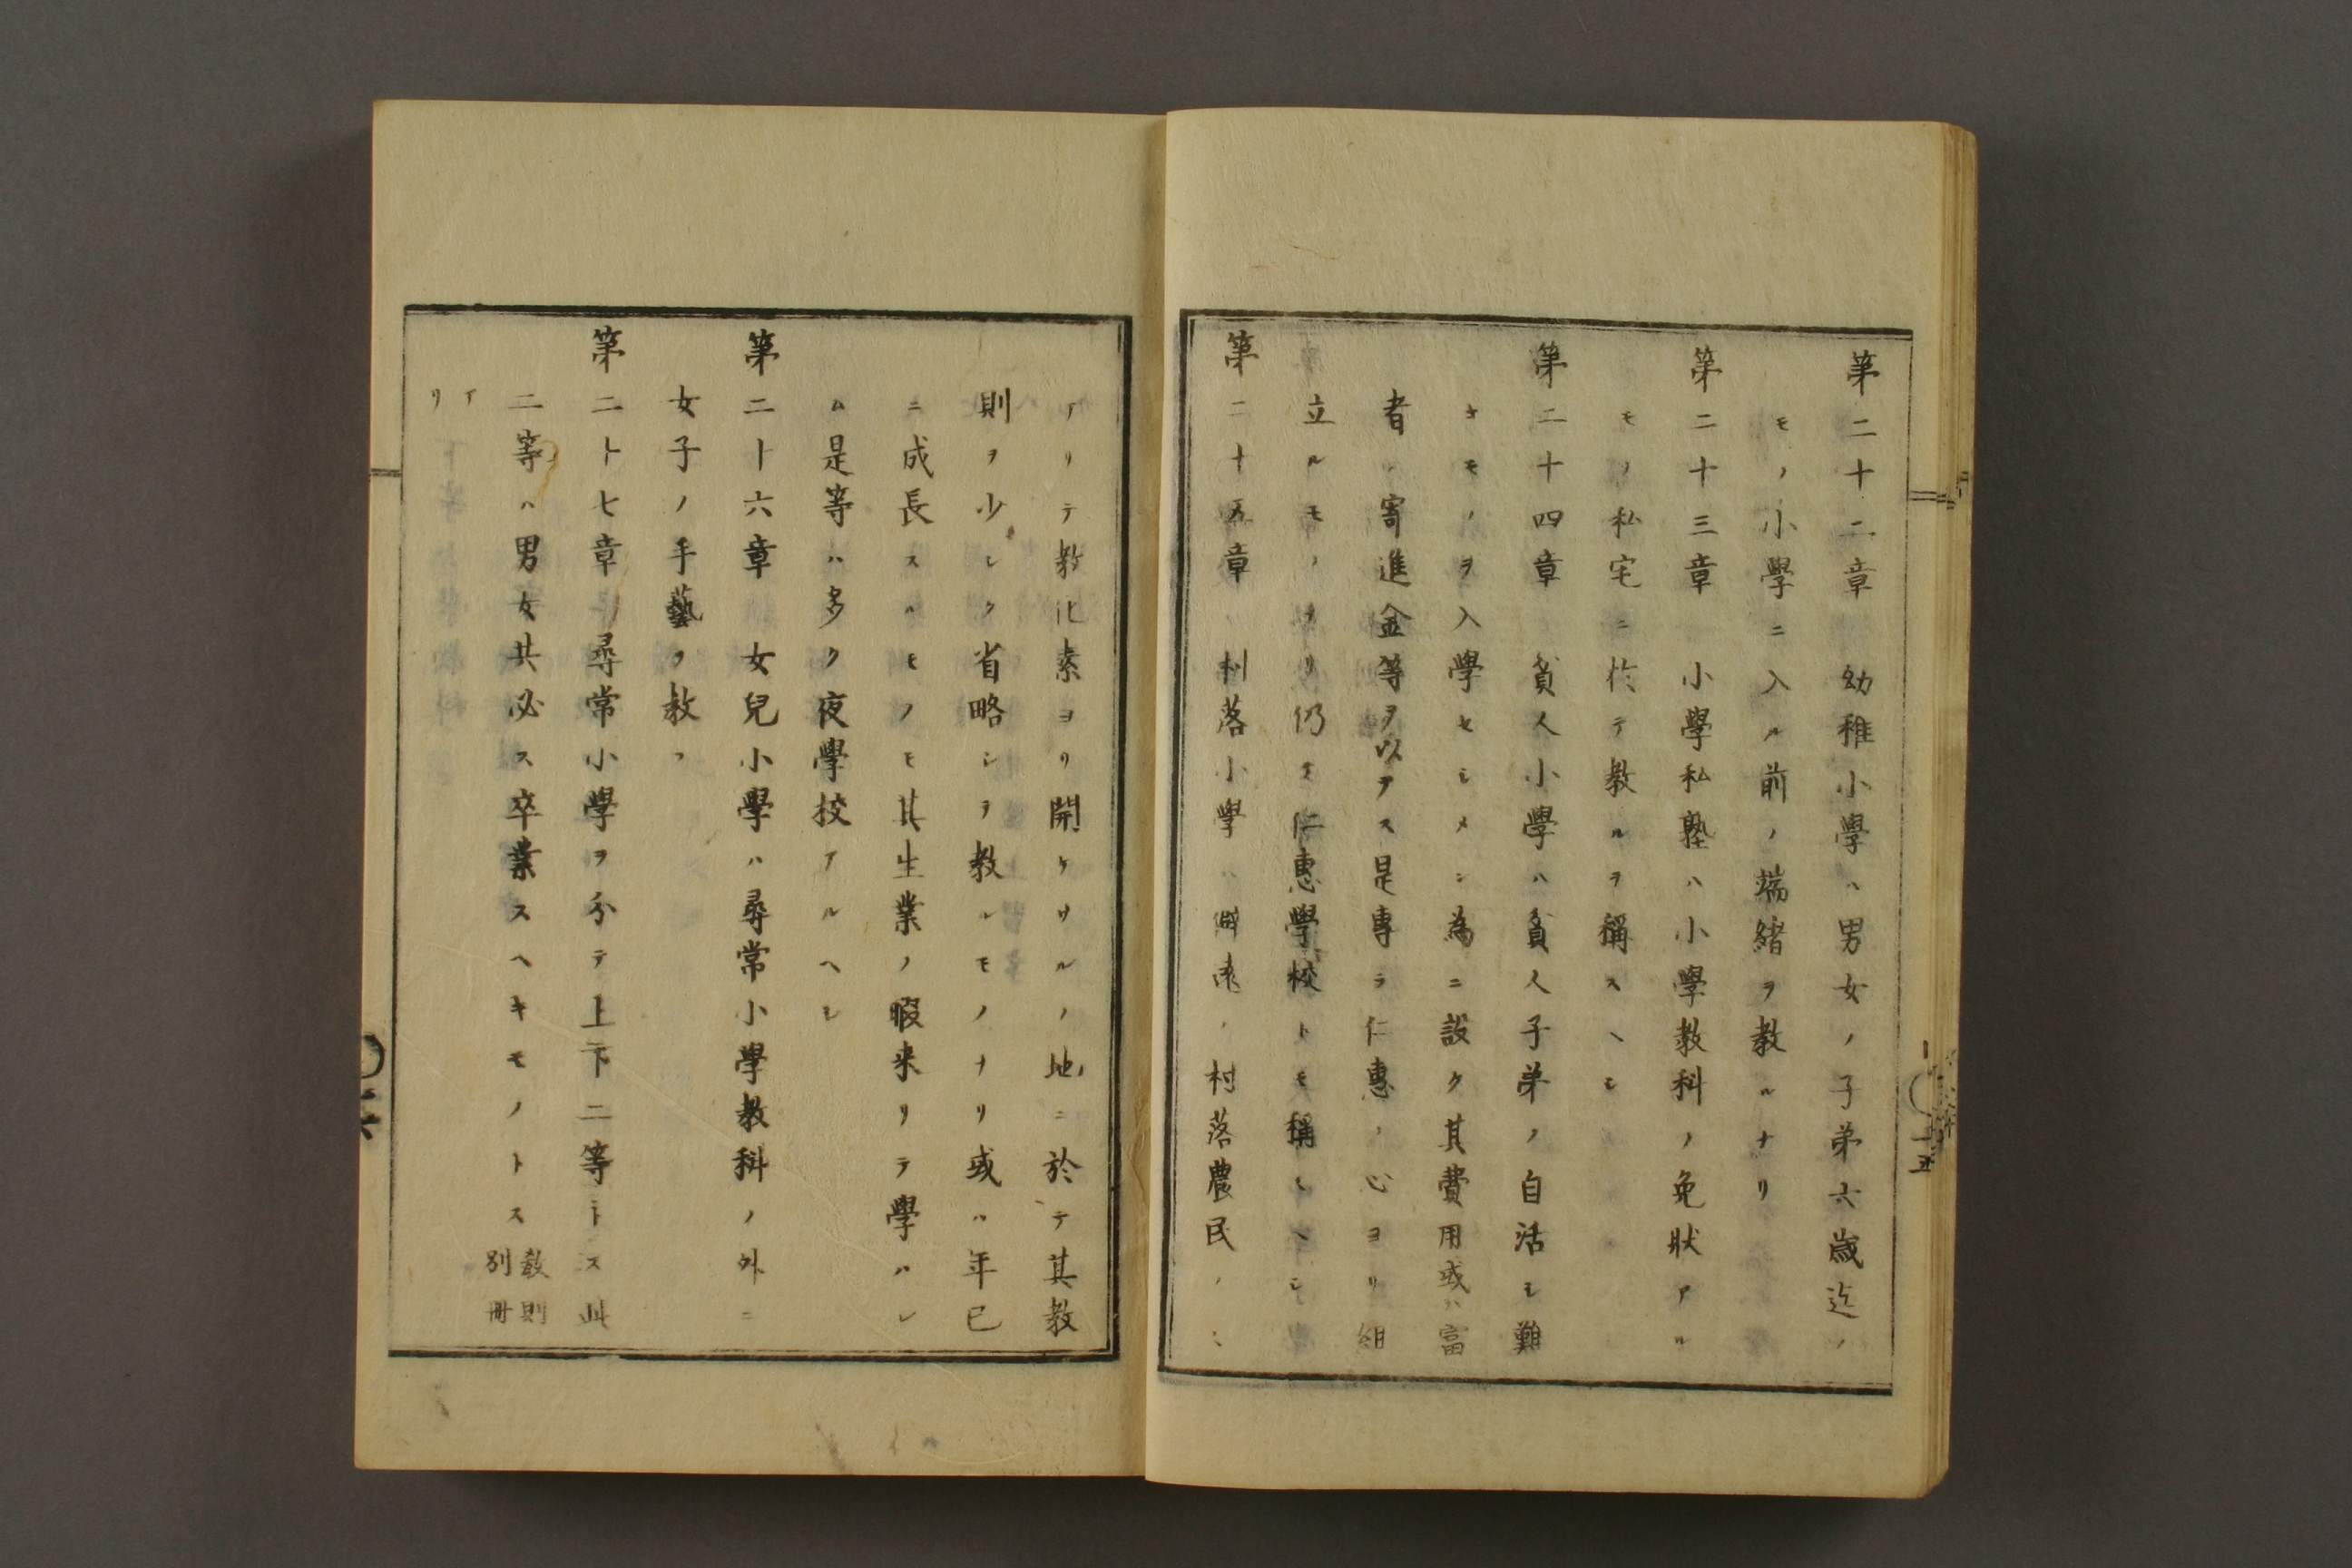 第二十二章 幼稚小學ハ男女ノ子弟六歳迄ノ
モノ小學ニ入ル前ノ端緒ヲ教ルナリ
第二十三章 小學私塾ハ小學教科ノ免狀アル
モノ私宅ニ於テ教ルヲ稱スヘシ
第二十四章 貧人小學ハ貧人子弟ノ自活シ難
キモノヲ入學セシメン為ニ設ク其費用或ハ富
者ノ寄進金等ヲ以テス是專ラ仁惠ノ心ヨリ組
立ルモノナリ仍テ仁惠學校トモ稱スヘシ
第二十五章 村落小學ハ僻遠ノ村落農民ノミ
アリテ教化素ヨリ開ケサルノ地ニ於テ其教
則ヲ少シク省略シテ教ルモノナリ或ハ年已
ニ成長スルモノモ其生業ノ暇来リテ學ハシ
ム是等ハ多ク夜學校アルヘシ
第二十六章 女兒小學ハ尋常小學教科ノ外ニ
女子ノ手藝ヲ教フ
第二十七章 尋常小學ヲ分テ上下二等トス此
二等ハ男女共必ス卒業スヘキモノトス 教則
別冊
アリ